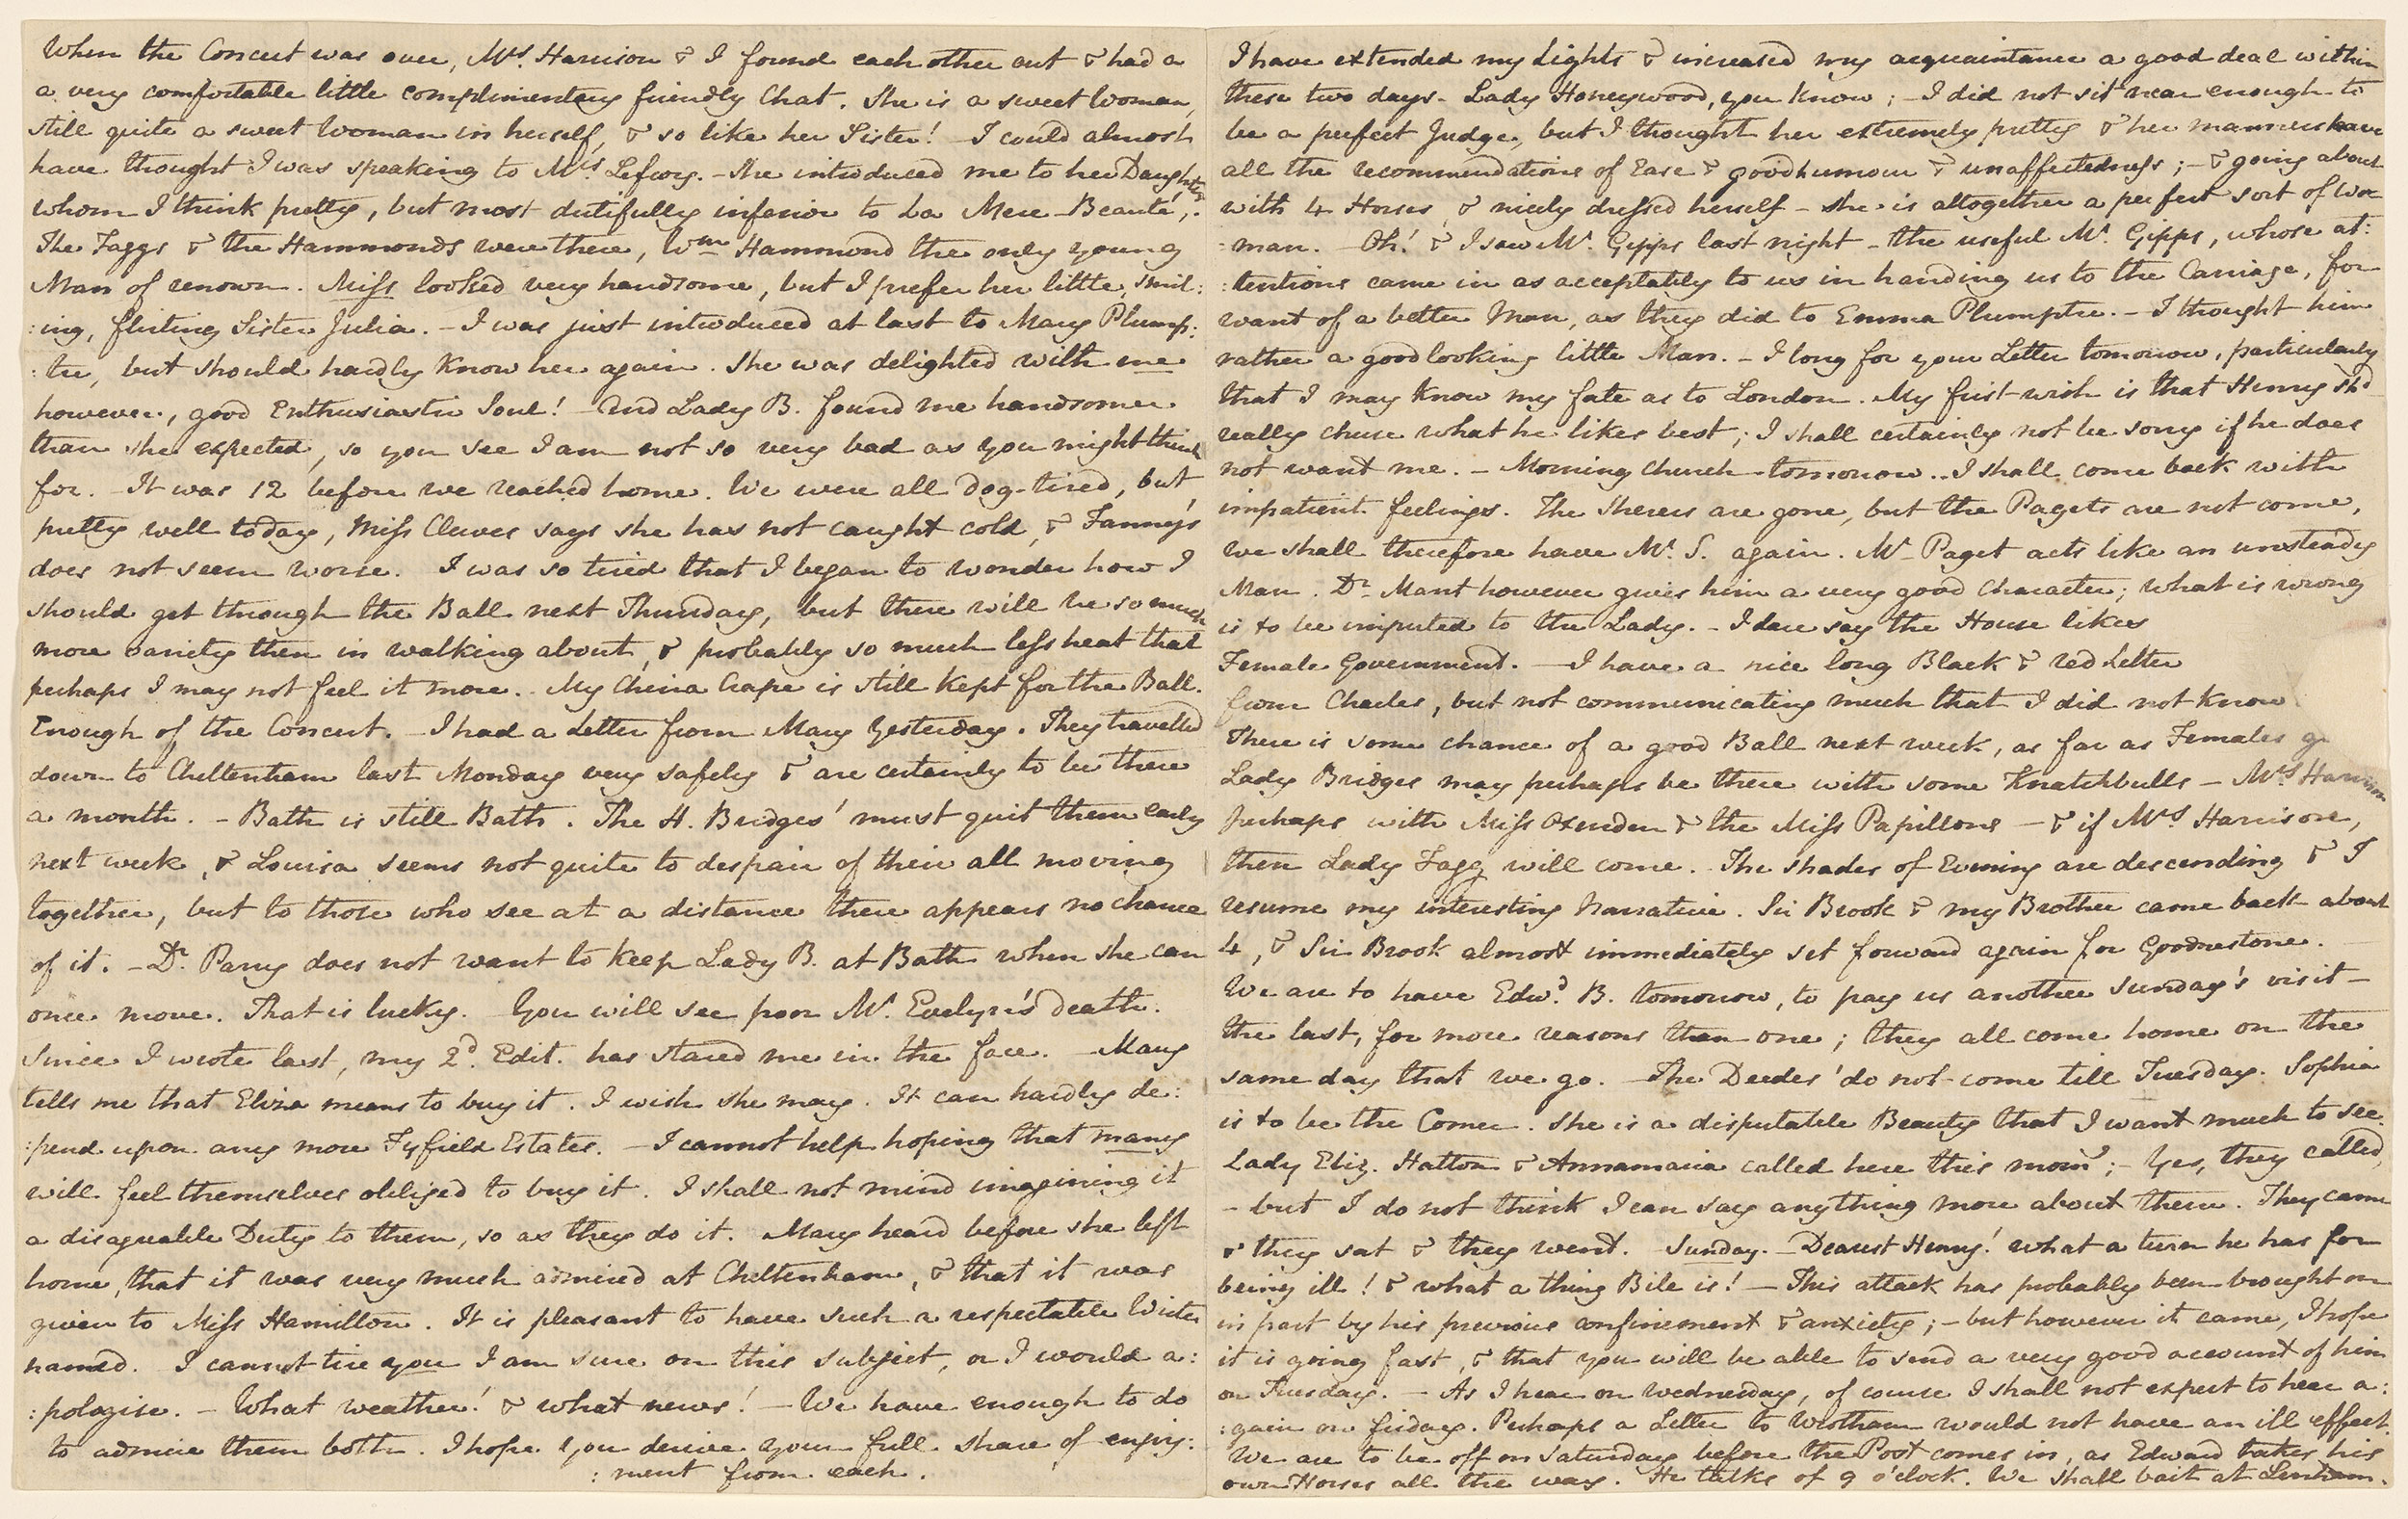 When the Concert was over, Mrs. Harrison & I found each other out & had a
a very comfortable little complimentary friendly Chat. She is a sweet Woman,
still quite a sweet Woman in herself, & so like her Sister! I could almost
have thought I was speaking to Mrs. Lefroy. – She introduced me to her Daughter,
whom I think pretty, but most dutifully inferior to La Mere Beauté,.
The Faggs & the Hammonds were there, Wm. Hammond the only young
Man of renown. Miss looked very handsome, but I prefer her little, smil:
:ing, flirting Sister Julia. – I was just introduced at last to Mary Plump:
:tre, but should hardly know her again. She was delighted with me
however, good Enthusiastic Soul! – And Lady B. found me handsomer
than she expected, so you see I am not so very bad as you might think
for. – It was 12 before we reached home. We were all dog-tired, but
pretty well today, Miss Clewes says she has not caught cold, & Fanny's
does not seem worse. I was so tired that I began to wonder how I
should get through the Ball next Thursday, but there will be so much
more variety then in walking about, & probably so much less heat that
perhaps I may not feel it more. My China Crape is still kept for the Ball.
Enough of the Concert. – I had a Letter from Mary Yesterday. They travelled
down to Cheltenham last Monday very safely & are certainly to be there
a month. – Bath is still Bath. The H. Bridges' must quit them early
next week, & Louisa seems not quite to despair of their all moving
together, but to those who see at a distance there appears no chance
of it. – Dr. Parry does not want to keep Lady B. at Bath when she can
once move. That is lucky. You will see poor Mr. Evelyn's death.
Since I wrote last, my 2d. Edit. has stared me in the face. – Mary
tells me that Eliza means to buy it. I wish she may. It can hardly de:
:pend upon any more Fyfield Estates. – I cannot help hoping that many
will feel themselves obliged to buy it. I shall not mind imagining it
a disagreable Duty to them, so as they do it. Mary heard before she left
home, that it was very much admired at Cheltenham, & that it was
given to Miss Hamilton. It is pleasant to have such a respectable Writer
named. I cannot tire you I am sure on this subject, or I would a:
:pologise. – What weather! & what news! – We have enough to do
to admire them both. I hope you derive your full share of enjoy:
:ment from each.
I have extended my Lights & increased my acquaintance a good deal within
these two days. Lady Honeywood, you know; – I did not sit near enough to
be a perfect Judge, but I thought her extremely pretty & her manners have
all the recommendations of Ease & goodhumour & unaffectedness; – & going about
with 4 Horses, & nicely dressed herself – she is altogether a perfect sort of Wo:
:man. – Oh! & I saw Mr. Gipps last night – the useful Mr. Gipps, whose at:
:tentions came in as acceptably to us in handing us to the Carriage, for
want of a better Man, as they did to Emma Plumptre. – I thought him
rather a goodlooking little Man. – I long for your Letter tomorrow, particularly
that I may know my fate as to London. My first wish is that Henry shd.
really chuse what he likes best; I shall certainly not be sorry if he does
not want me. – Morning Church tomorrow. – I shall come back with
impatient feelings. The Sherers are gone, but the Pagets are not come,
we shall therefore have Mr. S. again. Mr. Paget acts like an unsteady
Man. Dr. Mant however gives him a very good Character; what is wrong
is to be imputed to the Lady. – I dare say the House likes
Female Government. – I have a nice long Black & red Letter
from Charles, but not communicating much that I did not know
There is some chance of a good Ball next week, as far as Females
Lady Bridges may perhaps be there with some Knatchbulls – Mrs. Harrison
perhaps with Miss Oxenden & the Miss Papillons – & if Mrs. Harrison,
then Lady Fagg will come. The shades of Evening are descending & I
resume my interesting Narrative. Sir Brook & my Brother came back about
4, & Sir Brook almost immediately set forward again for Goodnestone.
We are to have Edwd. B. tomorrow, to pay us another Sunday's visit –
the last, for more reasons than one; they all come home on the
same day that we go. – The Deedes' do not come till Tuesday. Sophia
is to be the Comer. She is a disputable Beauty that I want much to see.
Lady Eliz. Hatton & Annamaria called here this morng.; – Yes, they called,
– but I do not think I can say anything more about them. They came
& they sat & they went. Sunday. – Dearest Henry! what a turn he has for
being ill! & what a thing Bile is! – This attack has probably been brought on
in part by his previous confinement & anxiety; – but however it came, I hope
it is going fast, & that you will be able to send a very good account of him
on Tuesday. – As I hear on Wednesday, of course I shall not expect to hear a:
:gain on friday. Perhaps a Letter to Wrotham would not have an ill effect.
We are to be off on Saturday before the Post comes in, as Edward takes his
own Horses all the way. He talks of 9 o'clock. We shall bait at Lenham.